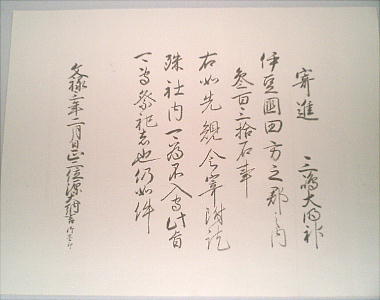 寄進 三嶋大明神
伊豆國田方之郡之内
参百三拾石事
右如先規令寄附訖
殊社内可為不入守此旨
可為祭祀者也仍如件
文禄三年二月日正二位源